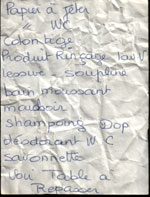 Papier a jeter
" WC
colon tige
Produit Rinçage lav
lessive - soupline
bain moussant
mouchoir
shampoing Dop
déodorant WC
savonnette
Voir Table a
Repasser